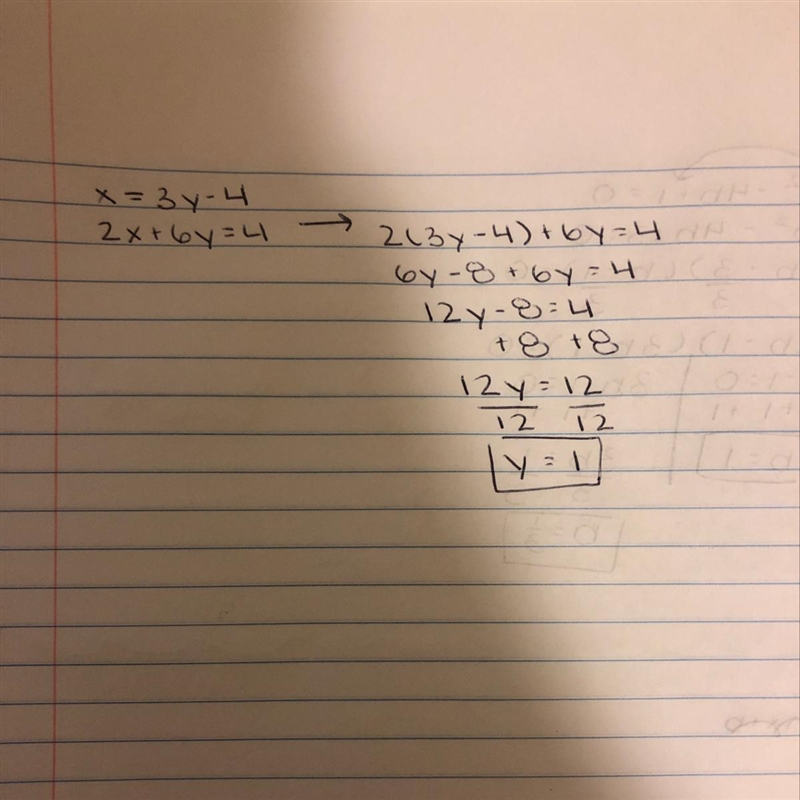 x = 3y - 4
2x + 6y = 4 → 2(3y - 4) + 6y = 4
6y - 8 + 6y = 4
12y - 8 = 4
+8 +8
12y = 12
12 12
y = 1